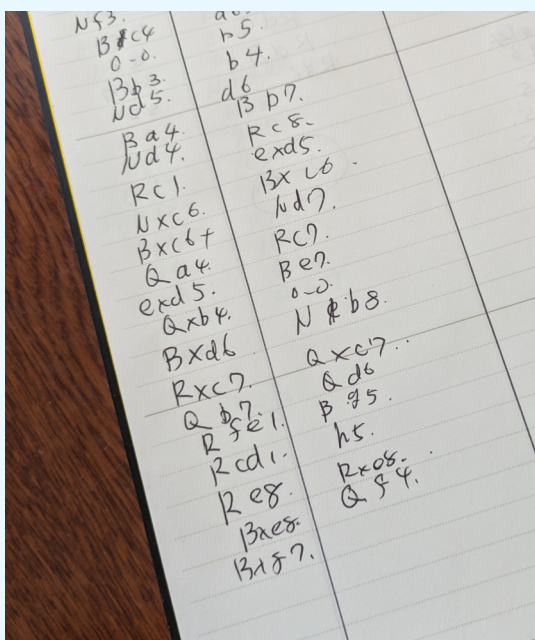 Nf3.
a6.
Bxc4
b5.
0-0.
b4.
Bb3.
d6
Nd5.
Bb7.
Ba4.
Rc8.
Nd4.
exd5.
Rc1.
Bxc6.
Nxc6.
Nd7.
Bxc6+
Rc7.
Qa4.
Be7.
exd5.
0-0.
Qxb4.
Nb8.
Bxd6
Qxc7..
Rxc7.
Qd6
Qb7.
Bg5.
Rfe1.
h5.
Rcd1.
Rxe8.
Re8.
Qf4.
Bxe8.
Bxf7.